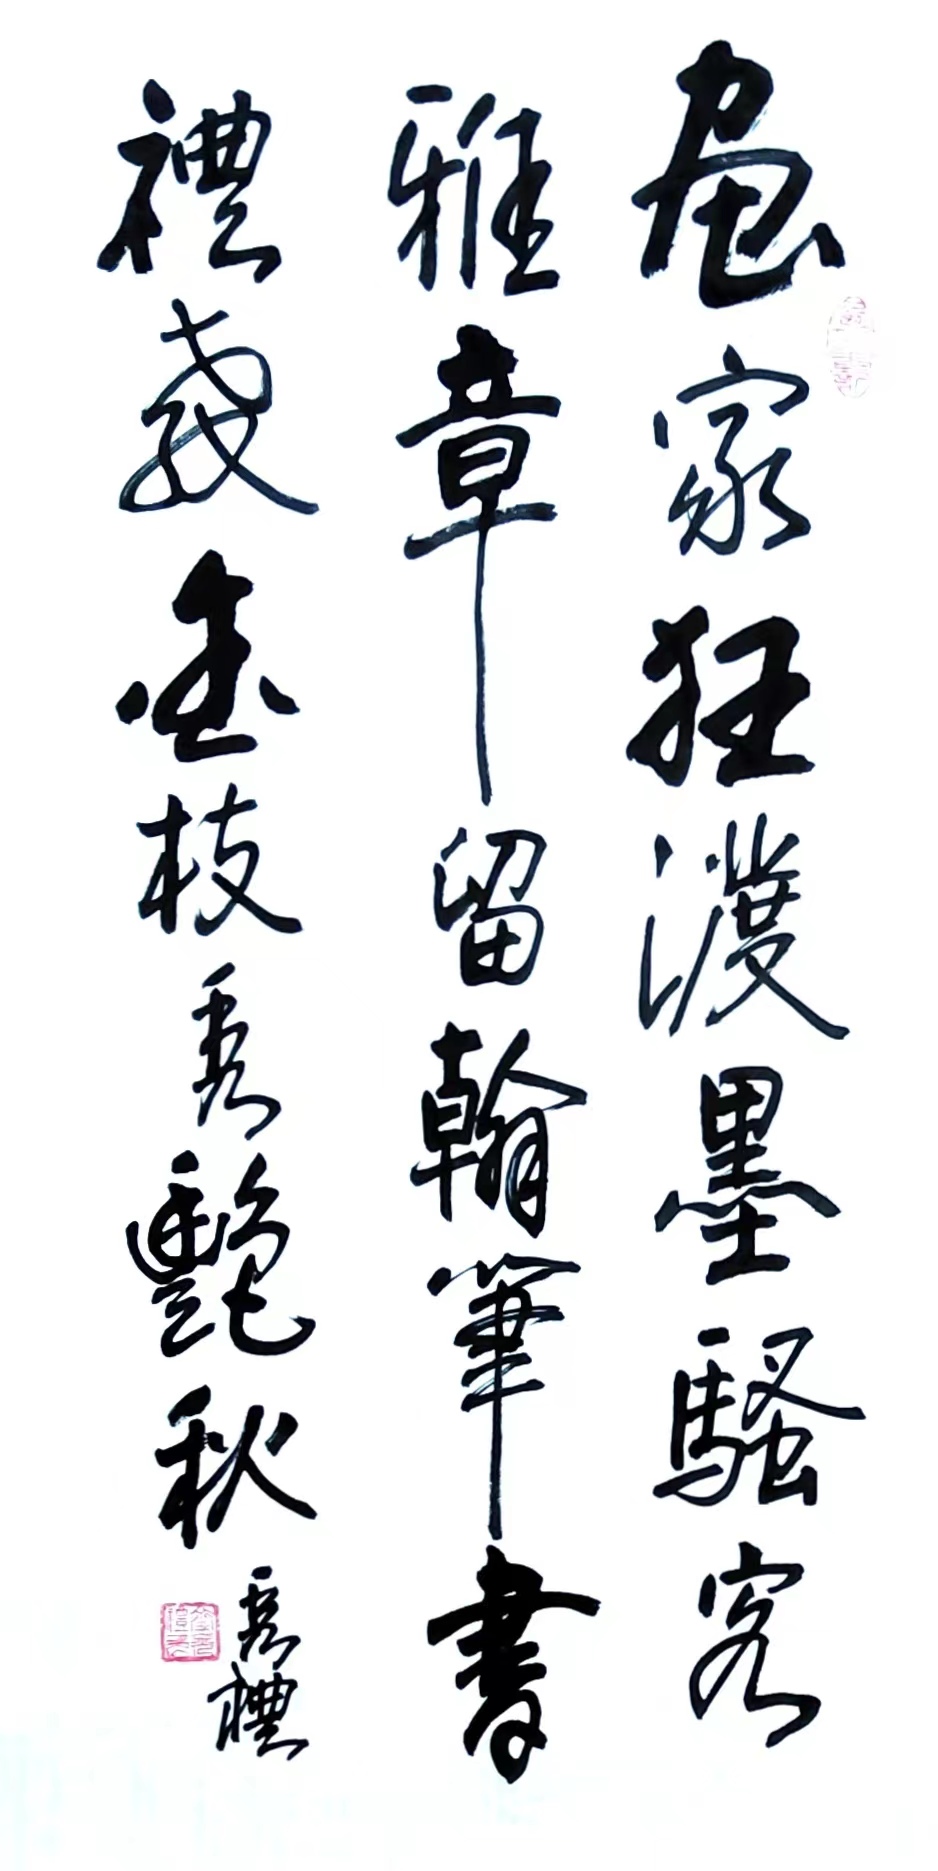 畫家狂潑墨騷客
雅章留翰筆書
禮義金枝秀艷秋
秀禮